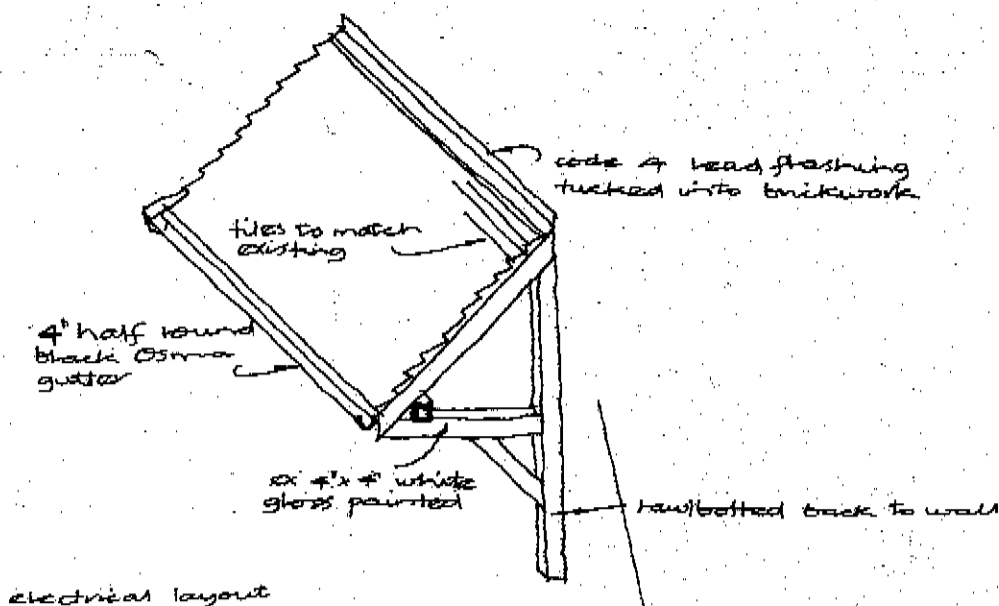 code 4 lead flashing
tucked into brickwork
tiles to match
existing
4" half round
black Osma
gutter
ex 4"x 4" white
gloss painted
rawlbolted back to wall
electrical layout